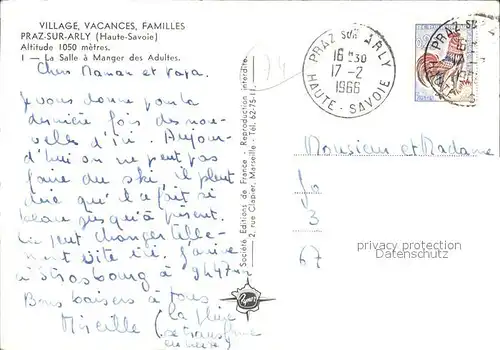 VILLAGE, VACANCES, FAMILLES
PRAZ-SUR-ARLY (Haute-Savoie)
Altitude 1050 mètres.
1 — La Salle à Manger des Adultes.
Chers Maman et Papa.
Je vous donne pour la
dernière fois des nou-
velles d'ici. Aujour-
d'hui on ne peut pas
faire du ski, il pleut
alors qu'il a fait si
beau jusqu'à présent.
Ça peut changer telle-
ment vite ici. J'arrive
à Strasbourg à 9h47
Bons baisers à tous
Mireille (la pluie
se transforme
en neige)
Société Editions de France - Reproduction interdite.
2, rue Clapier, Marseille - Tél. 62-75-11.
74
PRAZ SUR ARLY
16H30
17-2
1966
HAUTE-SAVOIE
Monsieur et Madame
3
67
privacy protection
Datenschutz